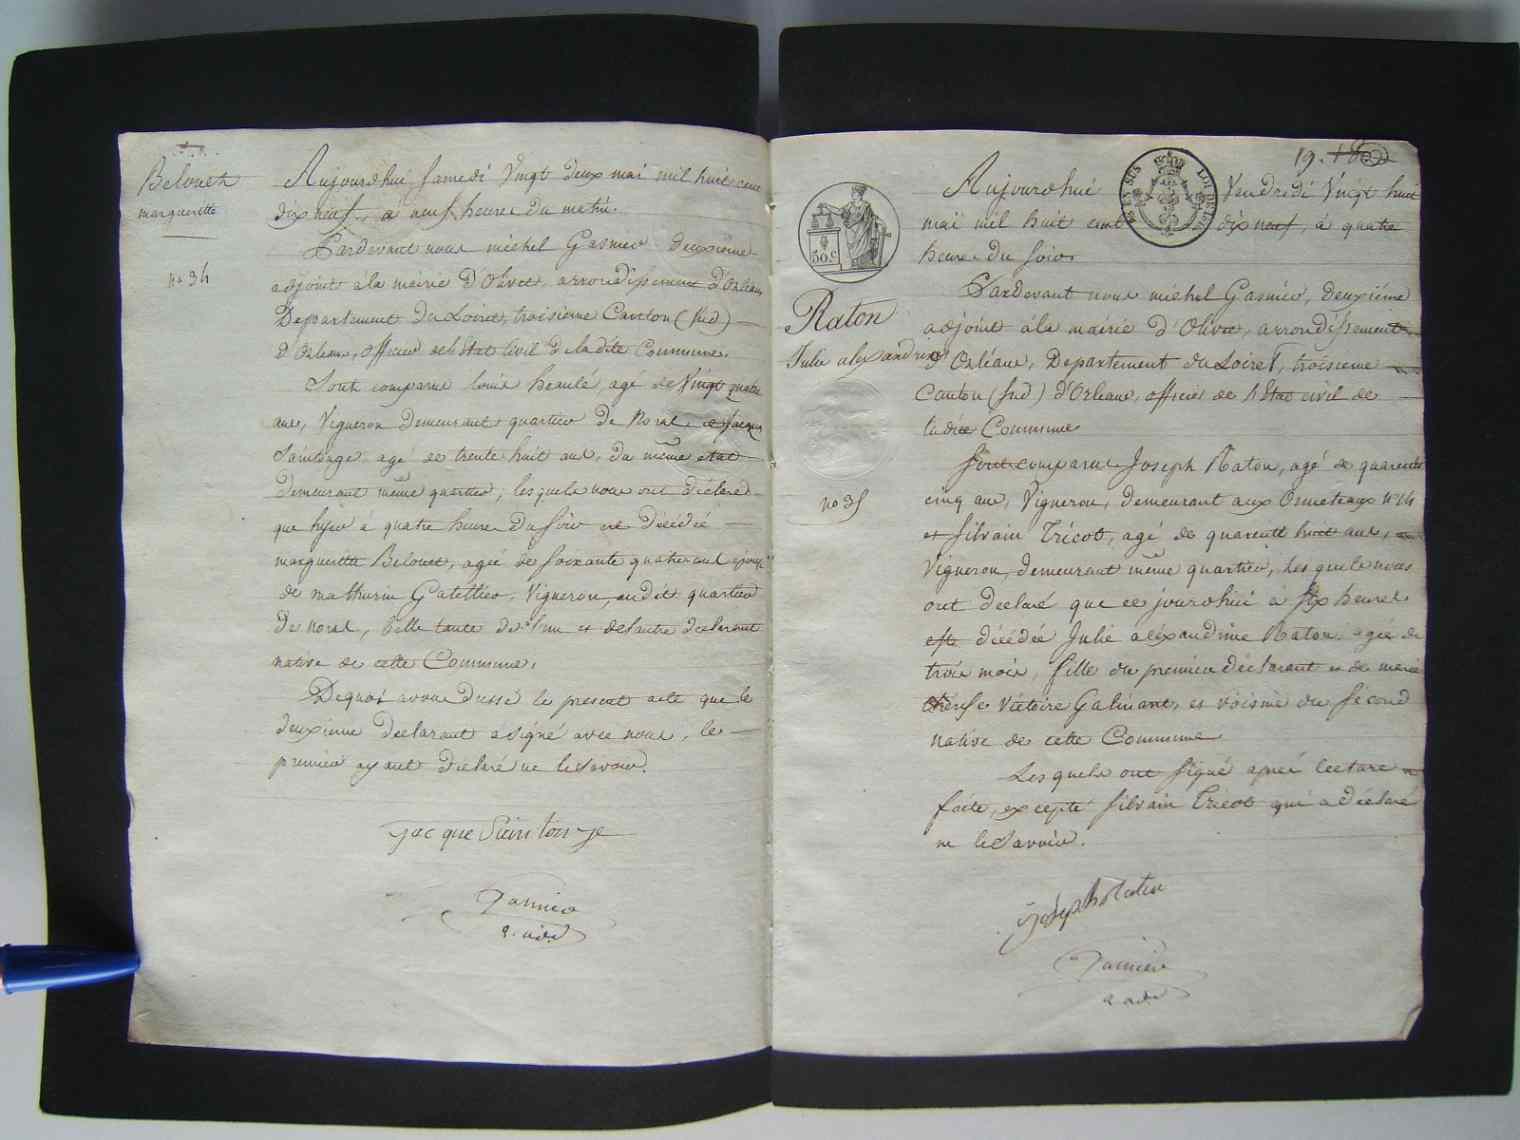 Belouet
margueritte
no 34
Aujourdhui Samedi Vingt deux mai mil huit cent
dix neuf, a neuf heure du matin.
Pardevant nous michel Gasnier deuxieme
adjoint ala mairie d'Olivet, arrondissement d'Orleans
Departement du Loiret, troisieme Canton (sud)
d'Orleans, officier de l'état Civil de ladite Commune.
Sont comparus louis heaulé, agé de Vingt quatre
ans, Vigneron demeurant quartier de Noral, et Jacque
Saintonge agé de trente huit ans, du même etat
demeurant même quartier, lesquels nous ont déclaré
que hyier a quatre heure du soir est décédée
margueritte Belouet, agée de soixante quatre ans epouse
de mathurin Galettier, Vigneron, audit quartier
de noral, belle tante de l'un et de l'autre declarant
native de cette Commune.
De quoi avons dressé le present acte que le
deuxieme declarant a signé avec nous, le
premier ayant déclaré ne le savoir.
jacque Saintonje
Gasnier
2. adj
19.
50.c
EN SUS
LOI DE 1816
Raton
Julie alexandrine
no 35
Aujourdhui Vendredi Vingt huit
mai mil huit cent dix neuf, à quatre
heure du soir
Pardevant nous michel Gasnier, deuxiéme
adjoint àla mairie d'Olivet, arrondissement
d'Orléans, Departement du Loiret, troisieme
Canton (sud) d'Orleans, officier de l'état civil de
ladite Commune
Sont comparus Joseph Raton, agé de quarente
cinq ans, Vigneron, demeurant aux Ormeteaux n° 14
et Silvain Tricot, agé de quarente huit ans,
Vigneron, demeurant même quartier, lesquels nous
ont declaré que ce jourdhui a six heures
est décédée Julie aléxandrine Raton, agée de
trois mois, fille du premier déclarant et de marie
thérese Victoire Galinant, et voisine du second
native de cette Commune
Lesquels ont signé aprés lecture
faite, excepté Silvain Tricot qui a déclaré
ne le savoir.
joseph Raton
Gasnier
2. adj